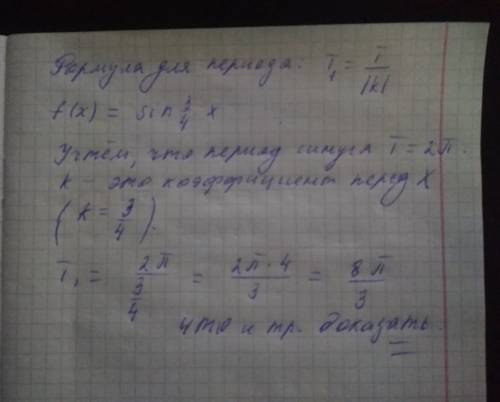 Формула для периода: T₁ = T/|k|
f(x) = sin 3/4 x
Учтём, что период синуса T = 2π.
k - это коэффициент перед x
(k = 3/4).
T₁ = 2π/(3/4) = 2π·4/3 = 8π/3
что и тр. доказать.